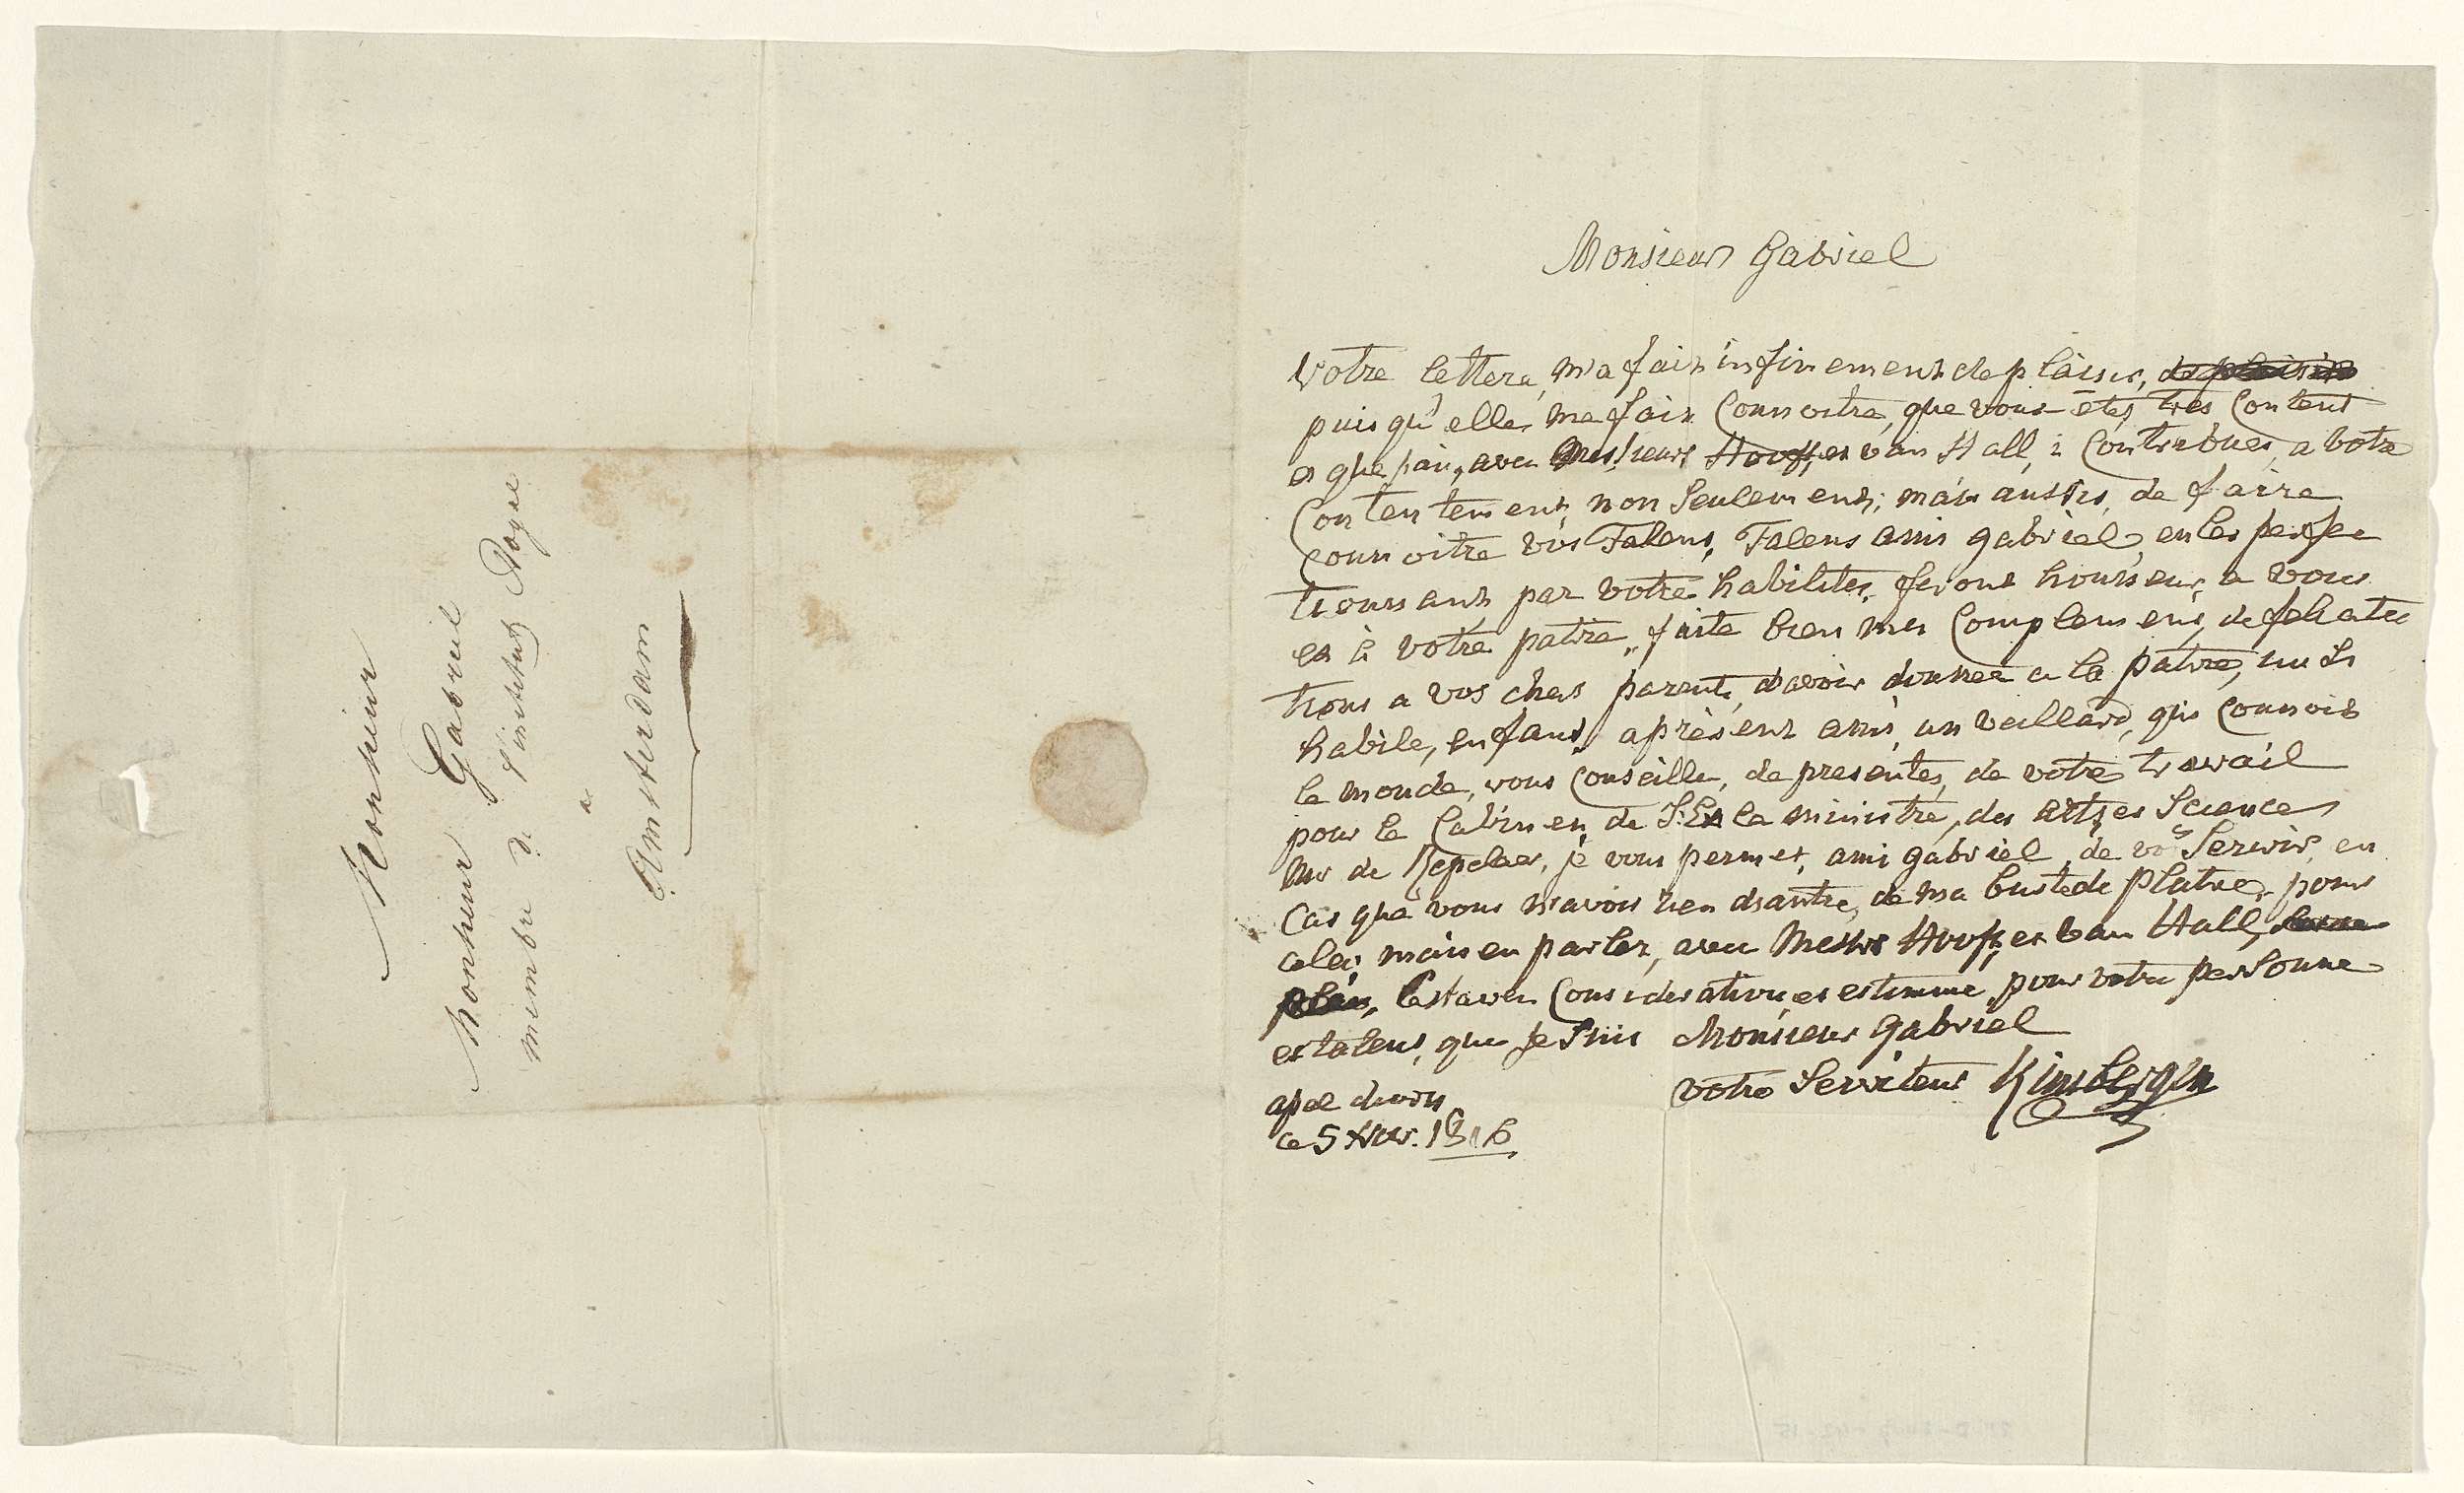 Monsieur
Monsieur Gabriel
membre de l'institut Royal
a
Amsterdam
Monsieur Gabriel
Votre lettera, m'a fait infinement de plaisir,
puis qu'elle, me fait Connoitre, que vous etes tres Content
et que j'ai, avec Messieurs Hooft, et van Hall, à Contribuer, a votre
Contentement, non Seulement, mais aussi, de faire
connoitre vos Talens, Talens ami gabriel, en les perfec
tionnant, par votre habilites, feront honneur, a vous
et à votre patrie, faite bien mes Complemens, de felicita
tions a vos chers parents, d'avoir donner a la patrie, un Si
habile, enfant, apresent ami, un veillard, qui Connoit
le monde, vous Conseille, de presenter, de votre travail
pour le Cabinet, de S:E: le ministre, des arts, et Sciences
Mr de Repelaer, je vous permet, ami gabriel, de vs Servir, en
Cas que vous n'avois rien d'autre, de ma buste de Platre, pour
cela, mais en parler, avec Messrs Hooft, et van Hall,
C'est avec Consideration, et estimme, pour votre personne
et talens, que je Suis Monsieur Gabriel
votre Serviteur Kinsbergen
apeldoorn
ce 5 Nov. 1816